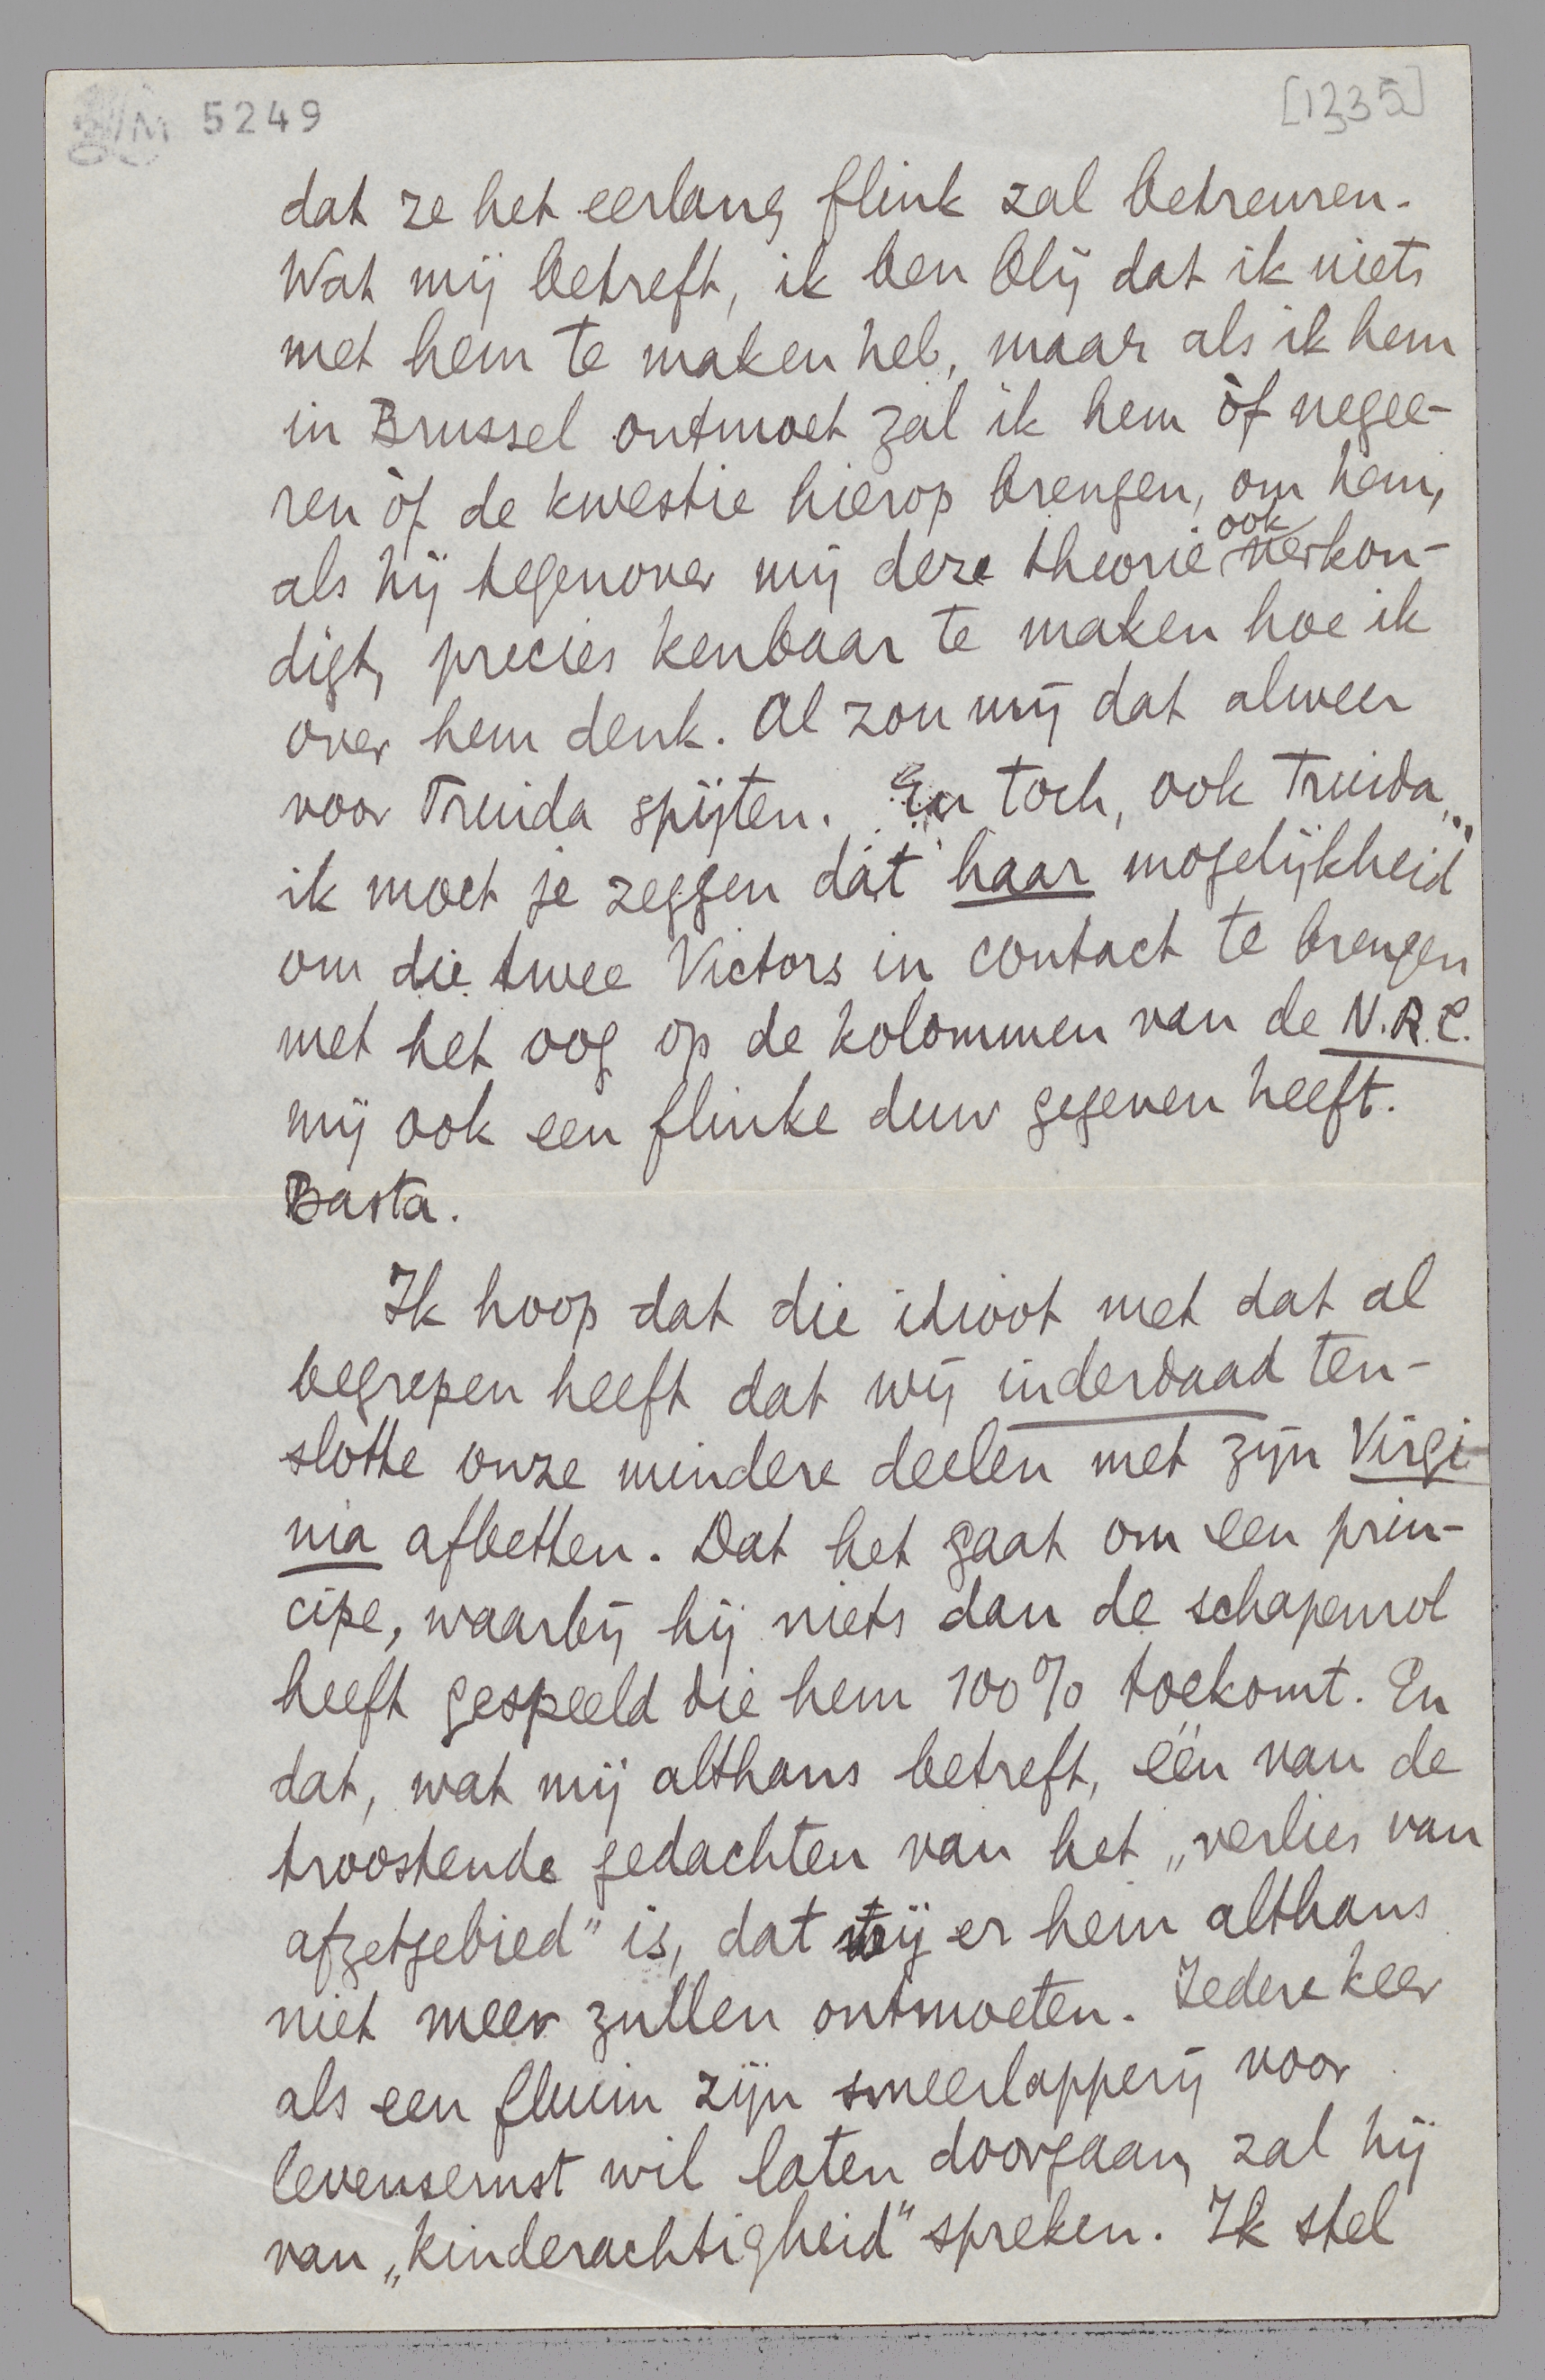 5249
[1335]
dat ze het eerlang flink zal betreuren.
Wat mij betreft, ik ben blij dat ik niets
met hem te maken heb, maar als ik hem
in Brussel ontmoet zal ik hem òf negee-
ren òf de kwestie hierop brengen, om hem,
als hij tegenover mij deze theorie ook verkon-
digt, precies kenbaar te maken hoe ik
over hem denk. Al zou mij dat alweer
voor Truida spijten. En toch, ook Truida..
ik moet je zeggen dàt haar mogelijkheid
om die twee Victors in contact te brengen
met het oog op de kolommen van de N.R.C.
mij ook een flinke duw gegeven heeft.
Basta.
Ik hoop dat die idioot met dat al
begrepen heeft dat wij inderdaad ten-
slotte onze mindere deelen met zijn Virgi-
nia afbetten. Dat het gaat om een prin-
cipe, waarbij hij niets dan de schapenrol
heeft gespeeld die hem 100% toekomt. En
dat, wat mij althans betreft, één van de
troostende gedachten van het „verlies van
afzetgebied” is, dat wij er hem althans
niet meer zullen ontmoeten. Iedere keer
als een fluim zijn smeerlapperij voor
levensernst wil laten doorgaan, zal hij
van „kinderachtigheid” spreken. Ik stel